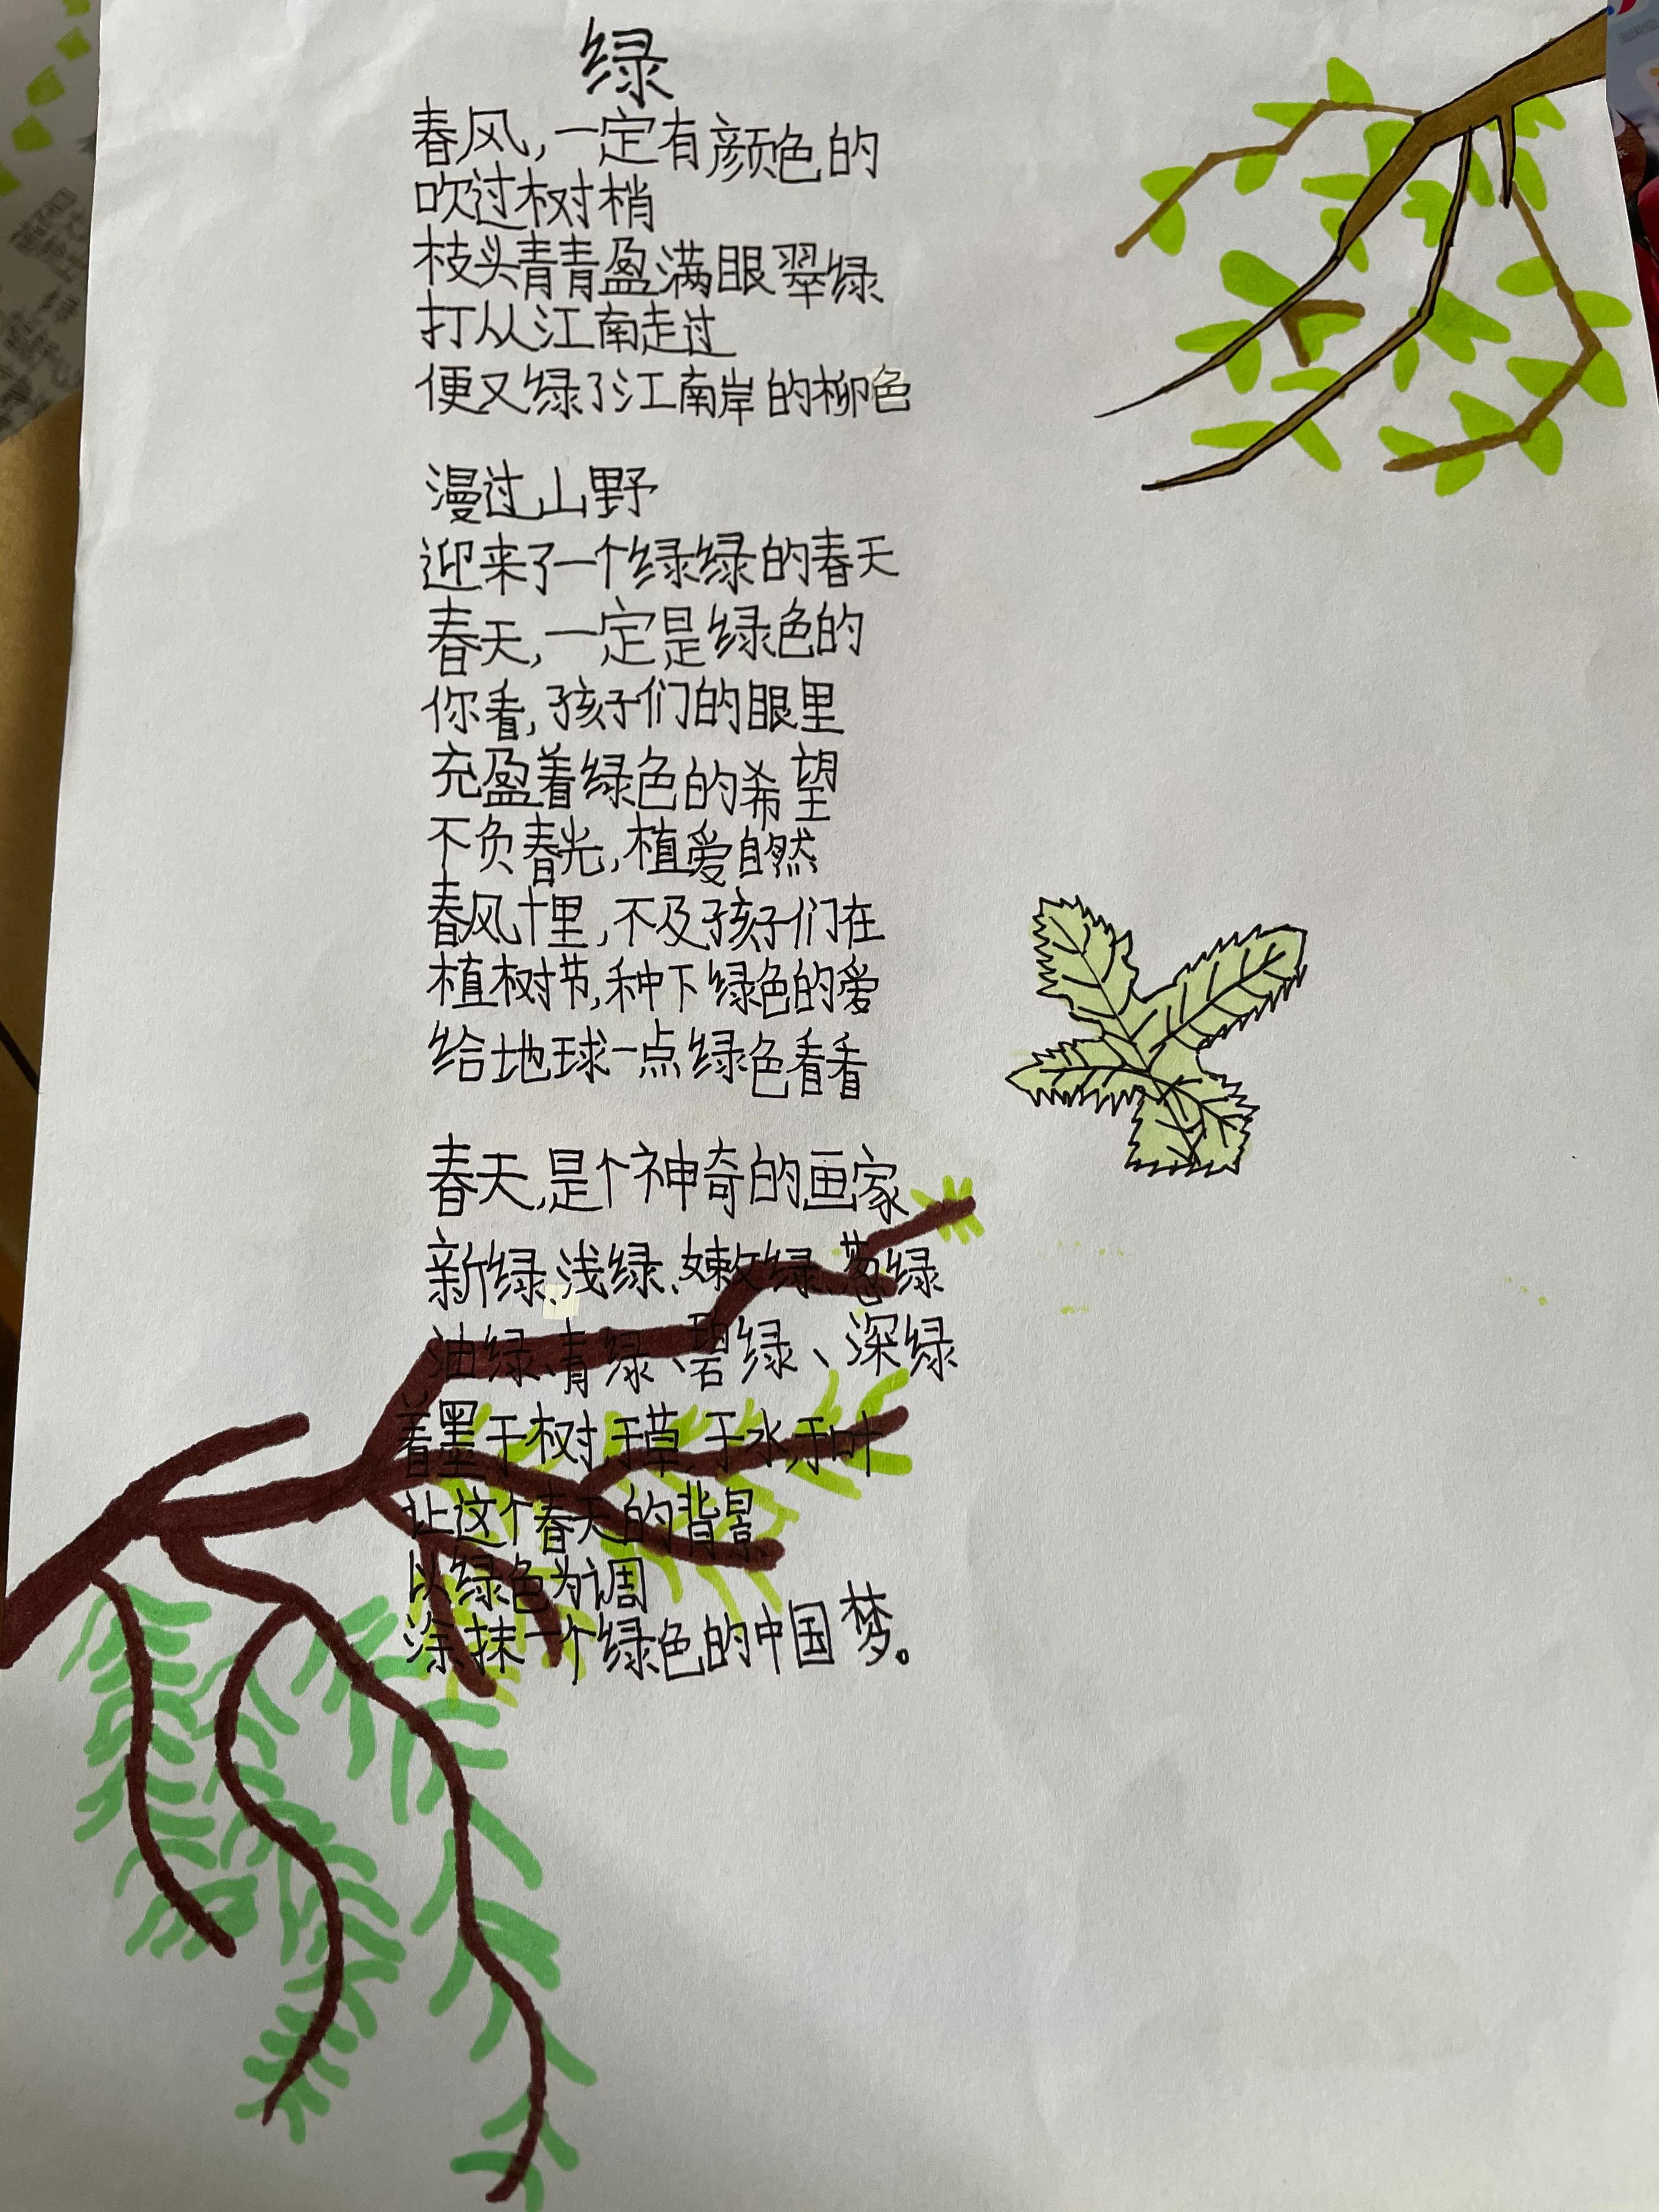 绿
春风,一定有颜色的
吹过树梢
枝头青青盈满眼翠绿
打从江南走过
便又绿了江南岸的柳色
漫过山野
迎来了一个绿绿的春天
春天,一定是绿色的
你看,孩子们的眼里
充盈着绿色的希望
不负春光,植爱自然
春风十里,不及孩子们在
植树节,种下绿色的爱
给地球一点绿色看看
春天,是个神奇的画家
新绿、浅绿、嫩绿、葱绿
油绿、青绿、碧绿、深绿
着墨于树,于草,于水,于叶
让这个春天的背景
以绿色为调
涂抹一个绿色的中国梦。